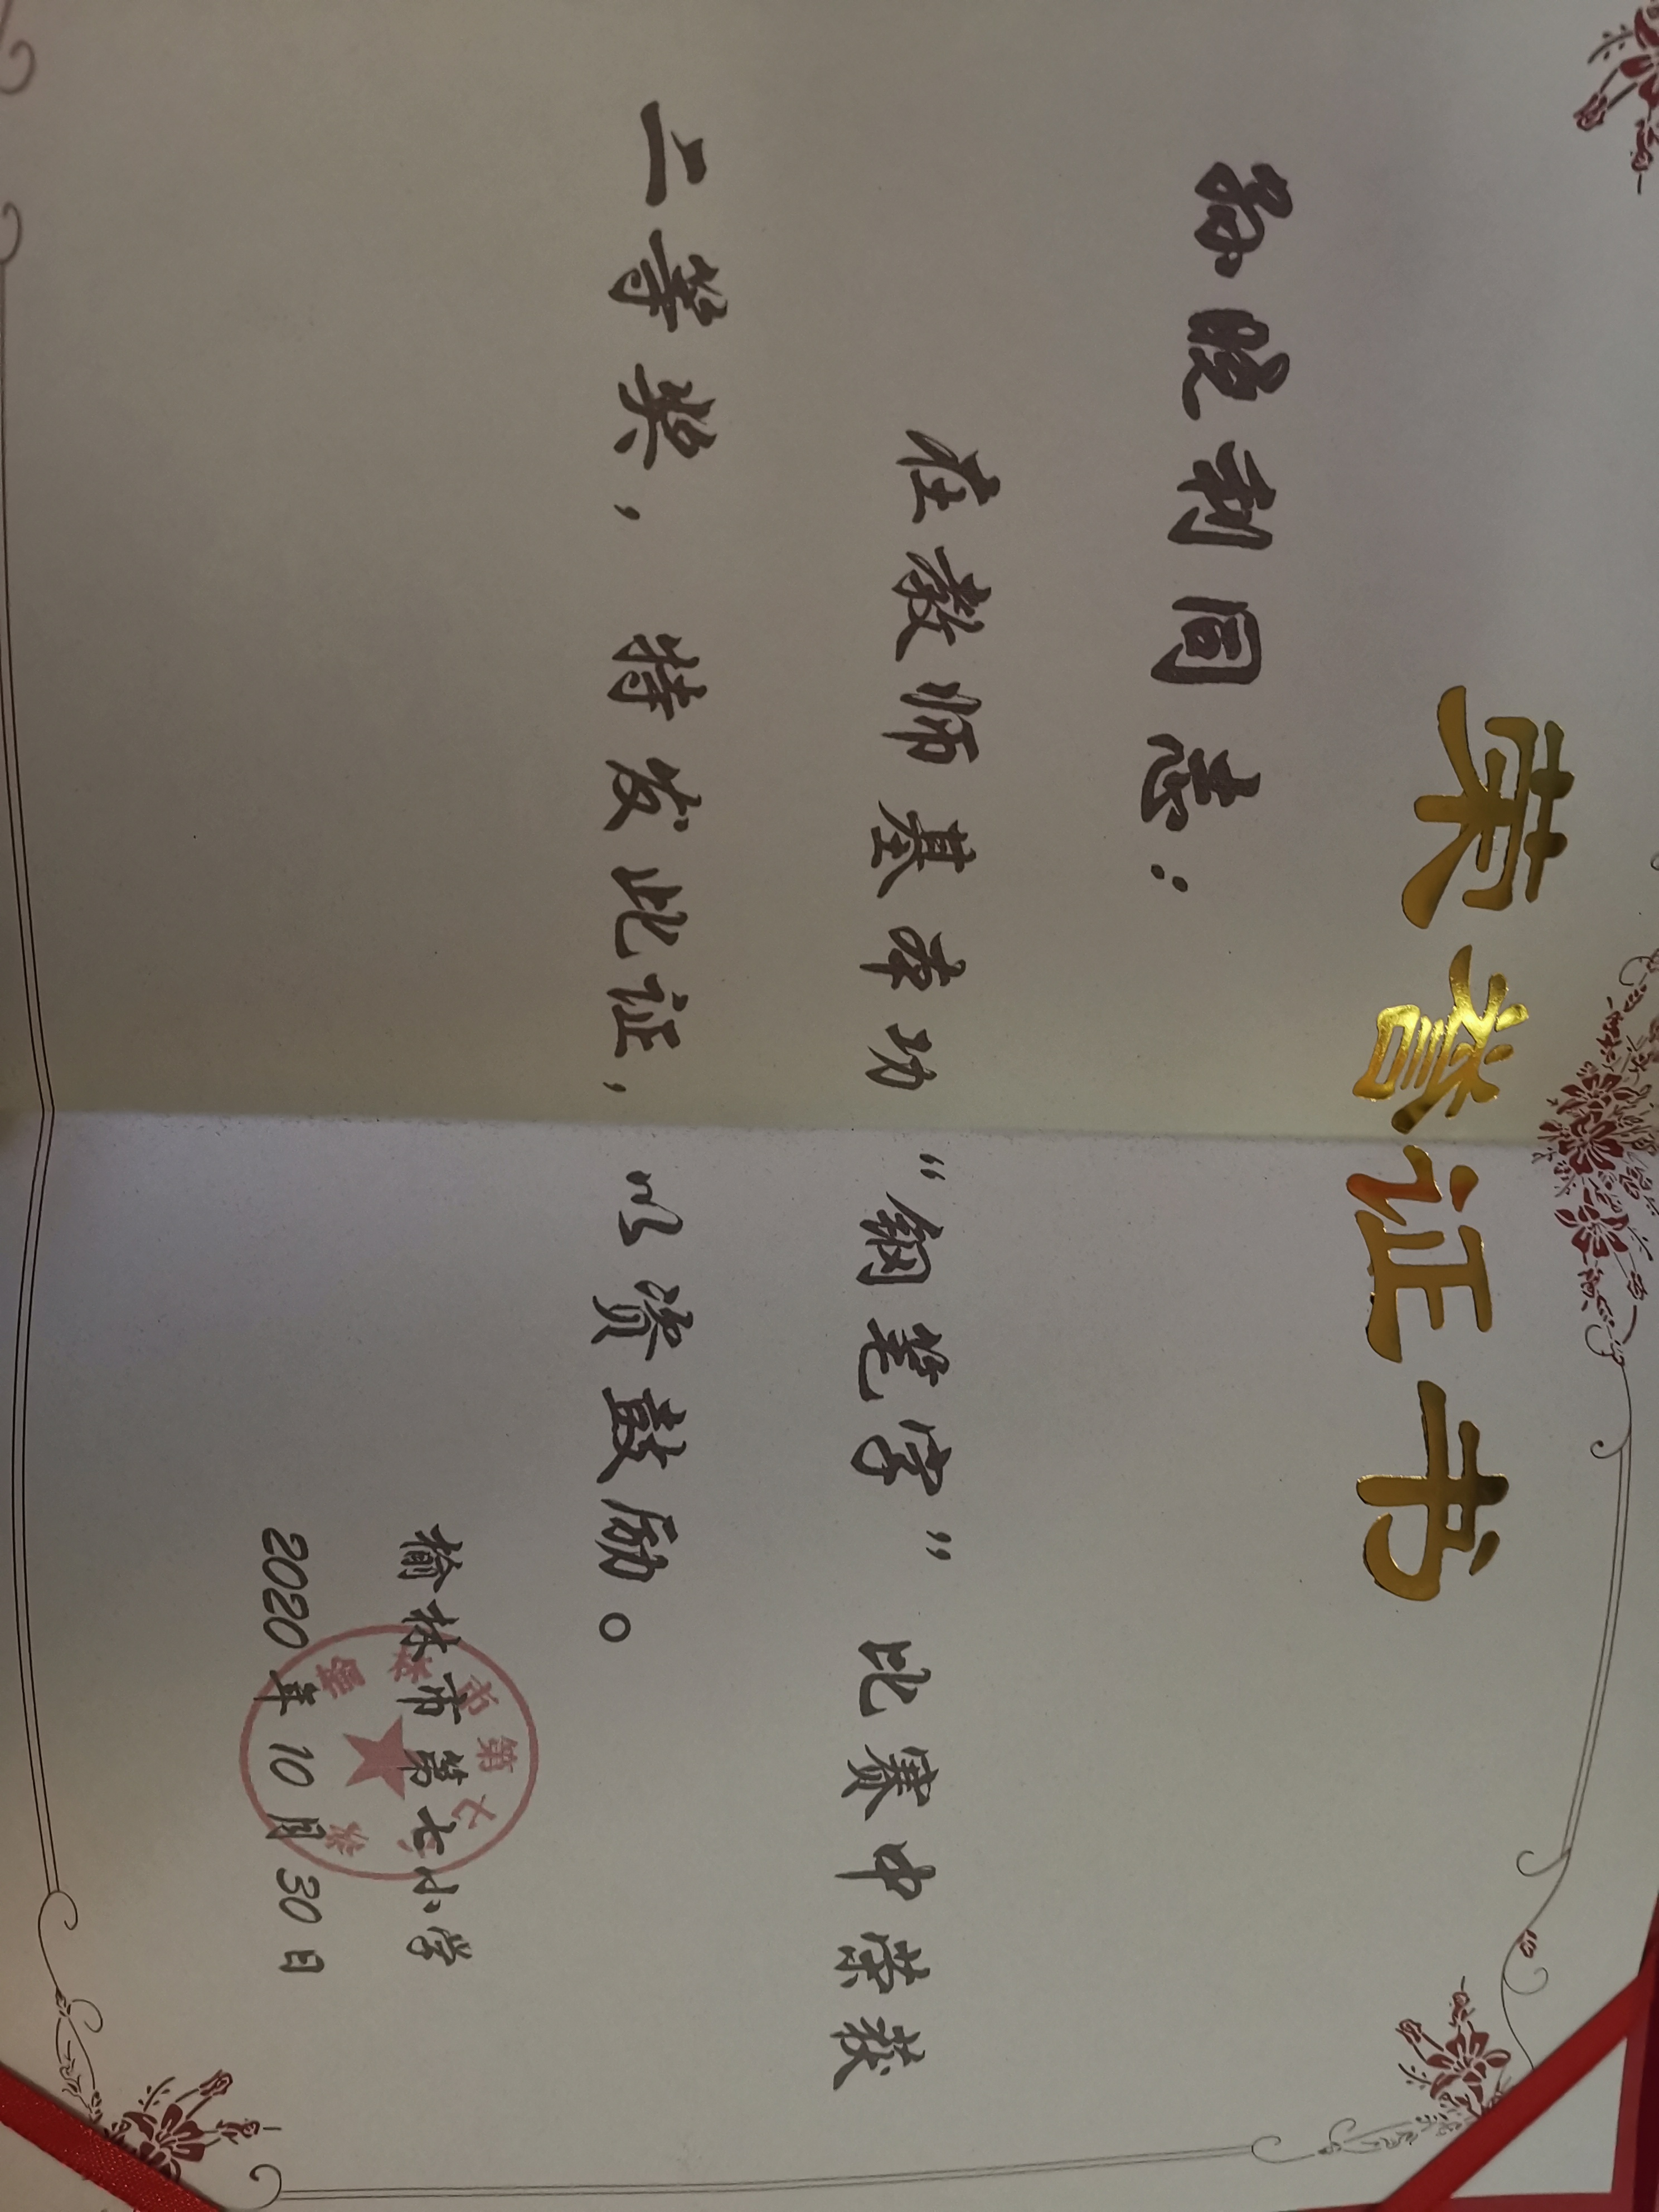 荣誉证书
孙晓利同志：
在教师基本功“钢笔字”比赛中荣获
二等奖，特发此证，以资鼓励。
榆林市第七小学
2020年10月30日